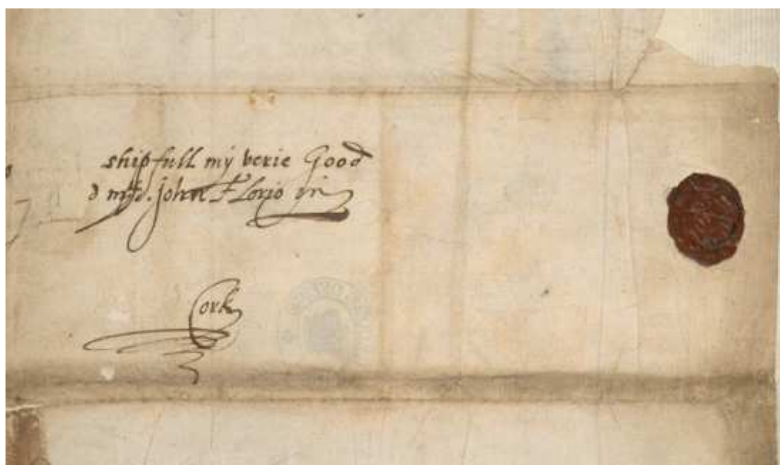 shipfull my verie Good
d mr. John Florio in
Cork